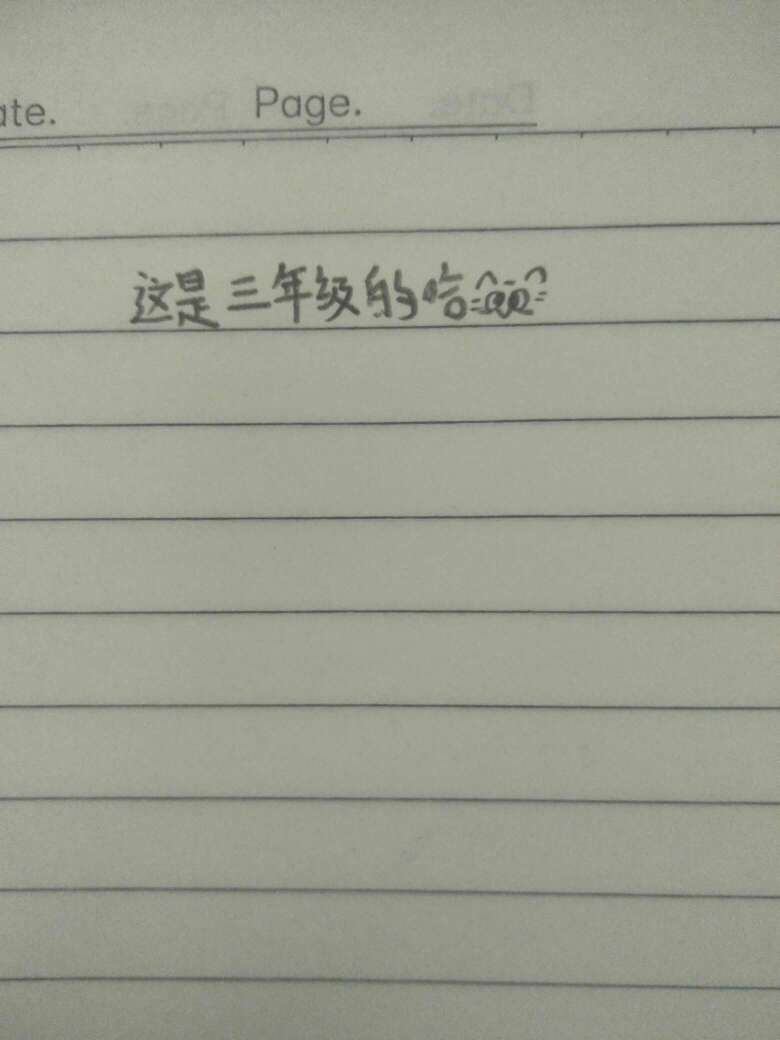 ate. Page.
这是三年级的哈